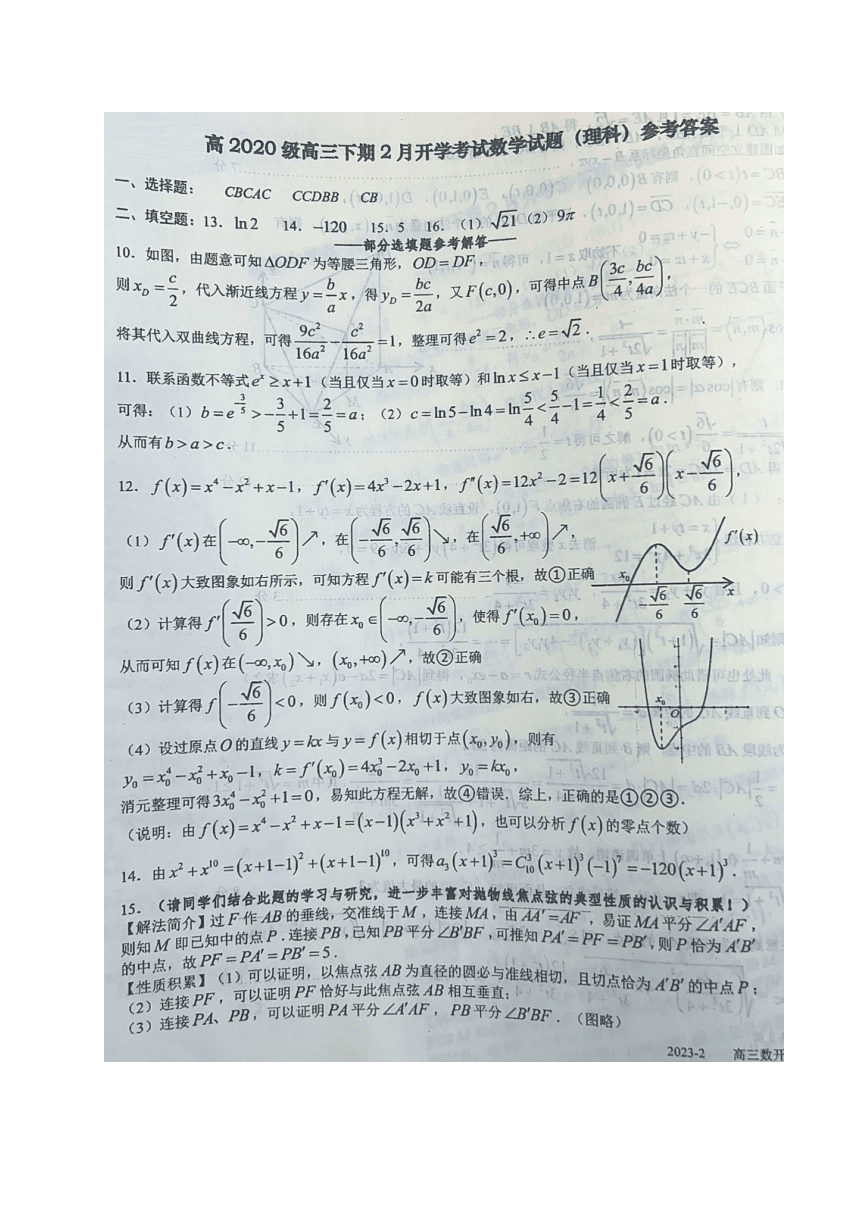 高 2020 级高三下期 2 月开学考试数学试题（理科）参考答案
一、选择题： CBCAC CCDBB CB
二、填空题：13. ln2 14. −120 15. 5 16. （1）√21（2）9π
——部分选填题参考解答——
10. 如图，由题意可知 ΔODF 为等腰三角形，OD = DF，
则 x_D = c/2，代入渐近线方程 y = (b/a)x，得 y_D = bc/2a，又 F(c,0)，可得中点 B(3c/4, bc/4a)，
将其代入双曲线方程，可得 9c²/16a² − c²/16a² = 1，整理可得 e² = 2，∴e = √2．
11. 联系函数不等式 e^x ≥ x+1（当且仅当 x = 0 时取等）和 ln x ≤ x−1（当且仅当 x = 1 时取等），
可得：（1）b = e^(−3/5) > −3/5 + 1 = 2/5 = a；（2）c = ln5 − ln4 = ln 5/4 < 5/4 − 1 = 1/4 < 2/5 = a．
从而有 b > a > c．
12. f(x) = x⁴ − x² + x − 1，f′(x) = 4x³ − 2x + 1，f″(x) = 12x² − 2 = 12(x + √6/6)(x − √6/6)，
（1）f′(x) 在 (−∞, −√6/6) ↗，在 (−√6/6, √6/6) ↘，在 (√6/6, +∞) ↗，
f′(x)
则 f′(x) 大致图象如右所示，可知方程 f′(x) = k 可能有三个根，故①正确
x₀ −√6/6 √6/6 x
（2）计算得 f′(√6/6) > 0，则存在 x₀ ∈ (−∞, −√6/6)，使得 f′(x₀) = 0，
从而可知 f(x) 在 (−∞, x₀) ↘，(x₀, +∞) ↗，故②正确
（3）计算得 f(−√6/6) < 0，则 f(x₀) < 0，f(x) 大致图象如右，故③正确
x₀ O
（4）设过原点 O 的直线 y = kx 与 y = f(x) 相切于点 (x₀, y₀)，则有
y₀ = x₀⁴ − x₀² + x₀ − 1，k = f′(x₀) = 4x₀³ − 2x₀ + 1，y₀ = kx₀，
消元整理可得 3x₀⁴ − x₀² + 1 = 0，易知此方程无解，故④错误、综上，正确的是①②③．
（说明：由 f(x) = x⁴ − x² + x − 1 = (x−1)(x³ + x² + 1)，也可以分析 f(x) 的零点个数）
14. 由 x² + x¹⁰ = (x+1−1)² + (x+1−1)¹⁰，可得 a₃(x+1)³ = C₁₀³(x+1)³(−1)⁷ = −120(x+1)³．
15. （请同学们结合此题的学习与研究，进一步丰富对抛物线焦点弦的典型性质的认识与积累！）
【解法简介】过 F 作 AB 的垂线，交准线于 M，连接 MA，由 AA′ = AF，易证 MA 平分 ∠A′AF，
则知 M 即已知中的点 P．连接 PB，已知 PB 平分 ∠B′BF，可推知 PA′ = PF = PB′，则 P 恰为 A′B′
的中点，故 PF = PA′ = PB′ = 5．
【性质积累】（1）可以证明，以焦点弦 AB 为直径的圆必与准线相切，且切点恰为 A′B′ 的中点 P；
（2）连接 PF，可以证明 PF 恰好与此焦点弦 AB 相互垂直；
（3）连接 PA、PB，可以证明 PA 平分 ∠A′AF，PB 平分 ∠B′BF．（图略）
2023-2 高三数开